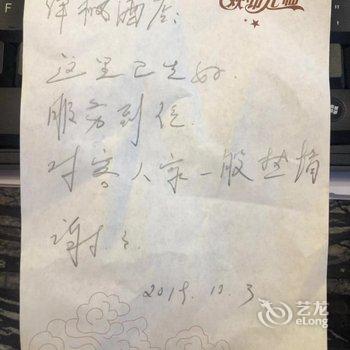 酒店:
这里卫生好.
服务到位.
对客人家一般
谢谢.
2019. 10. 3
艺龙
eLong
F